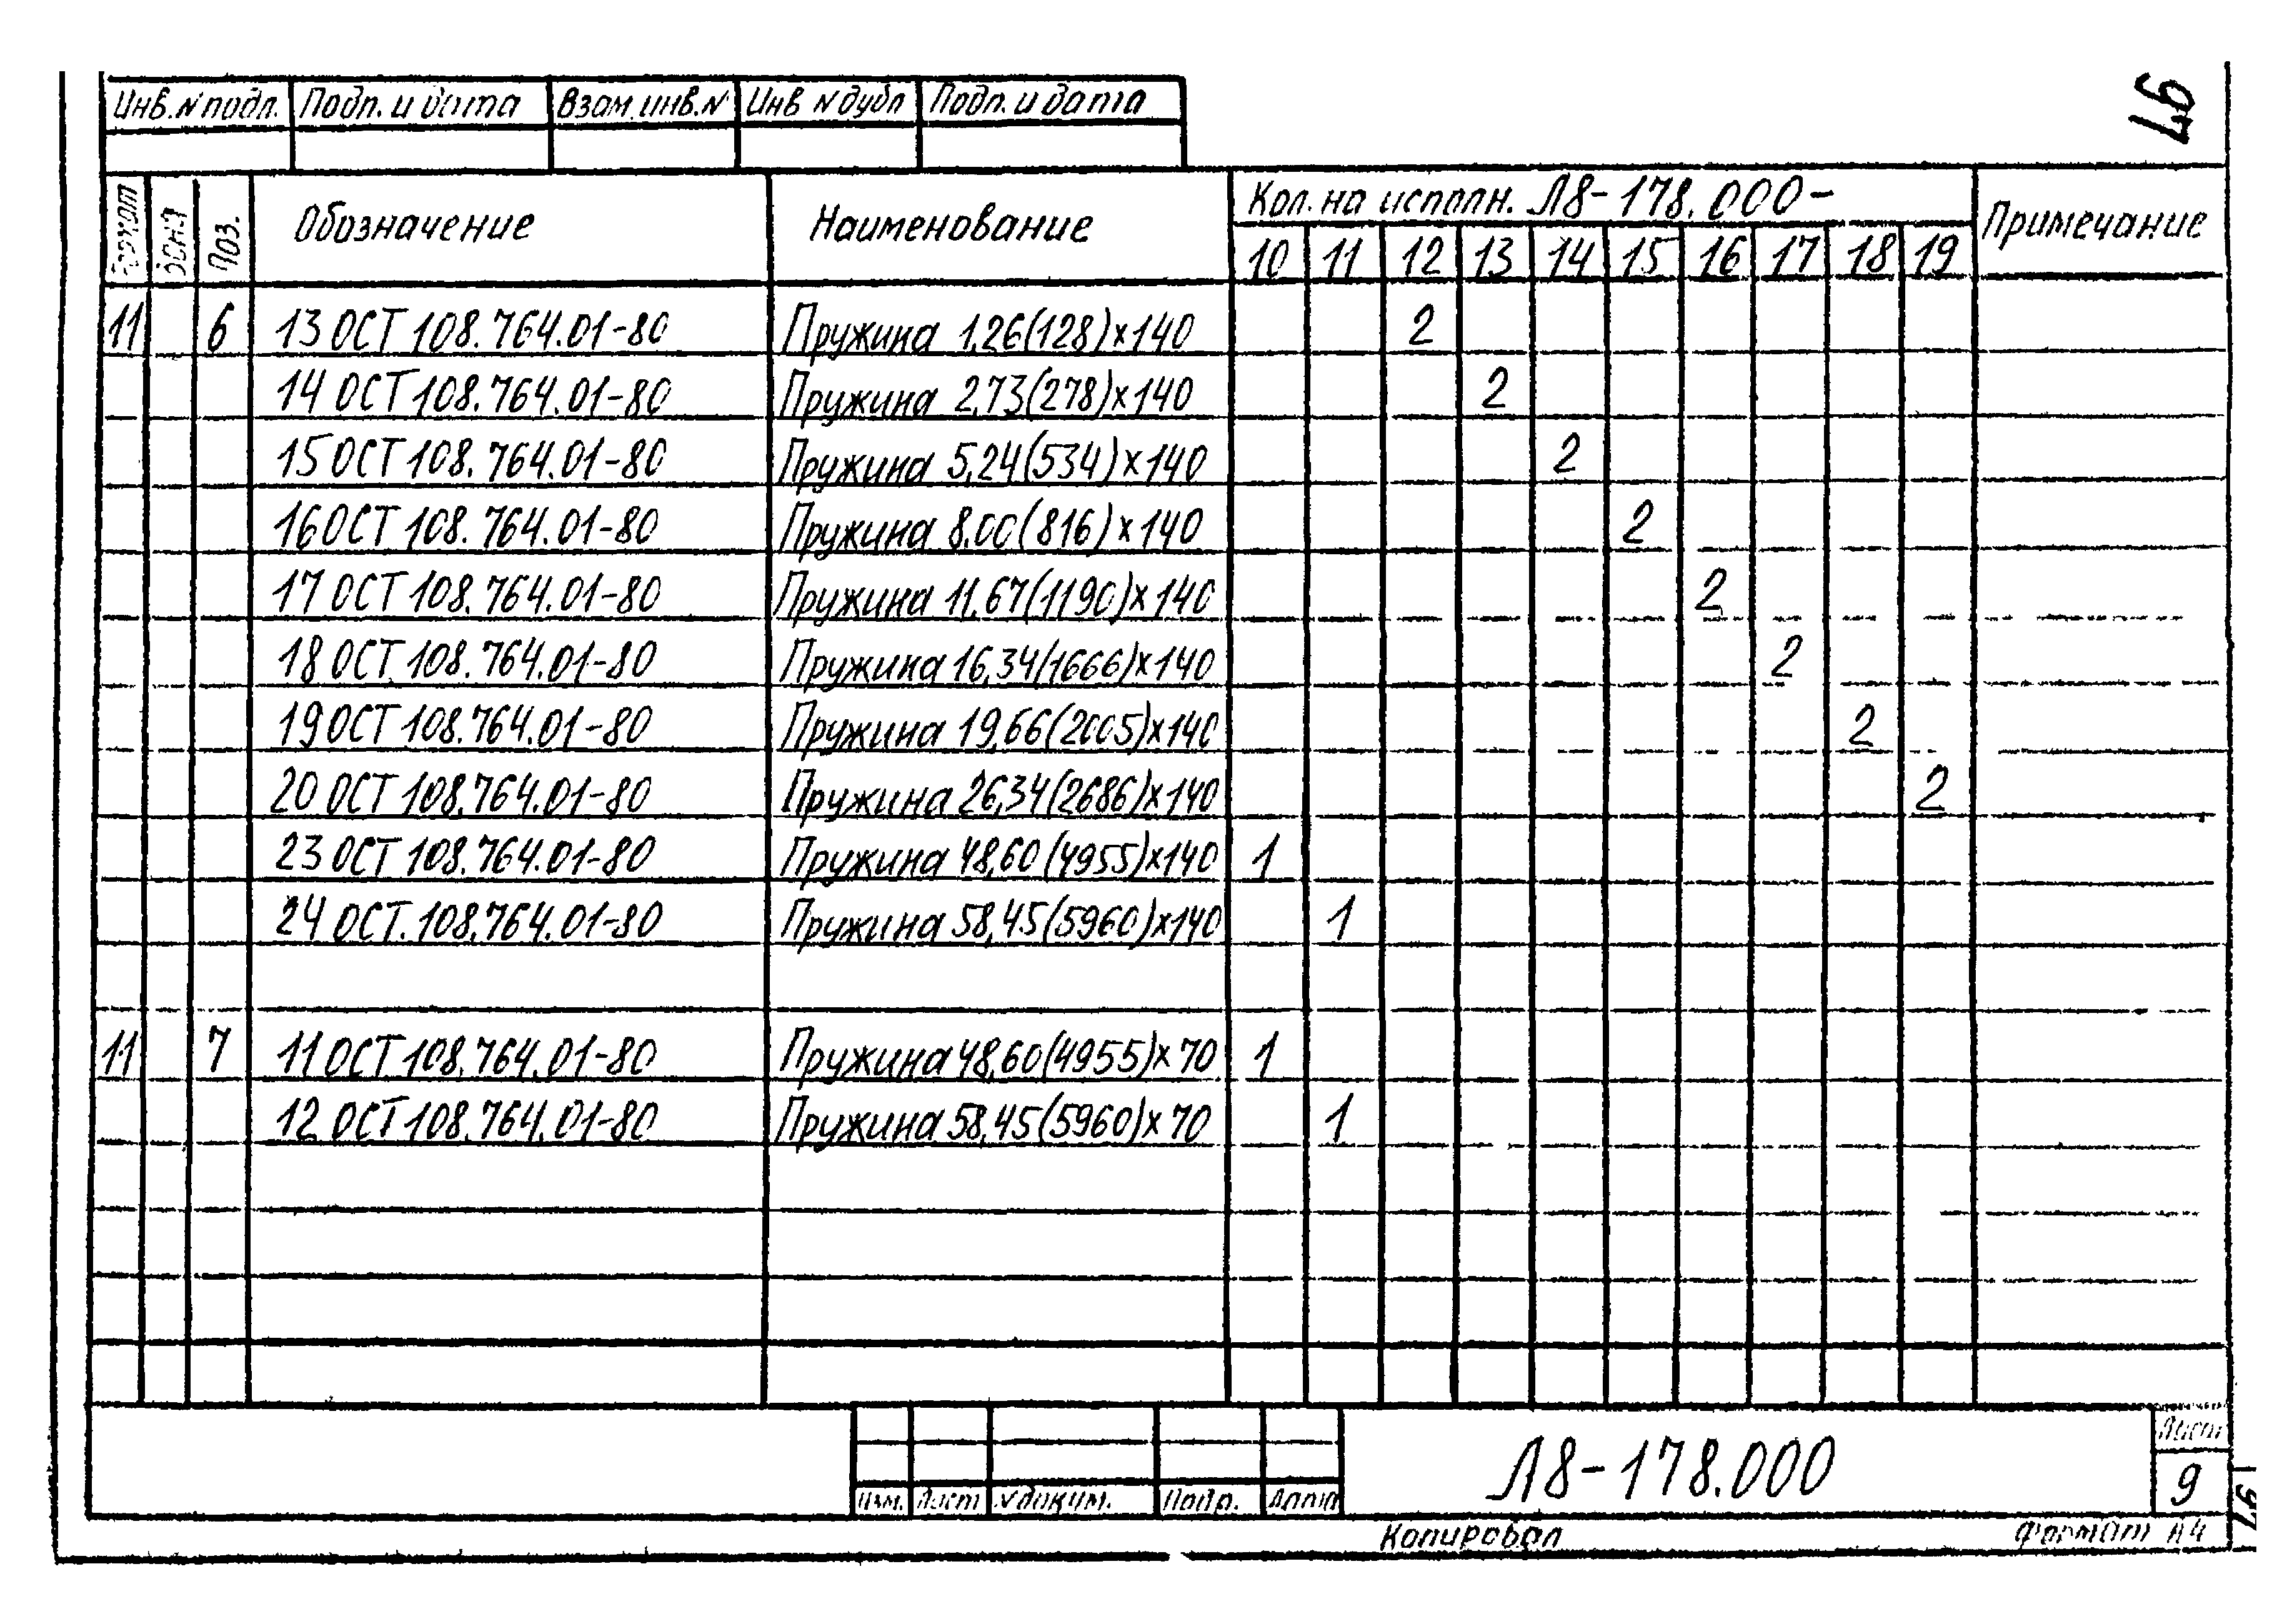 97
Инв.N подл. Подп. и дата Взам.инв.N Инв N дубл Подп. и дата
Формат Зона Поз. Обозначение Наименование Кол. на исполн. Л8-178.000- Примечание
10 11 12 13 14 15 16 17 18 19
11 6 13 ОСТ 108.764.01-80 Пружина 1,26(128)х140 2
14 ОСТ 108.764.01-80 Пружина 2,73(278)х140 2
15 ОСТ 108.764.01-80 Пружина 5,24(534)х140 2
16 ОСТ 108.764.01-80 Пружина 8,00(816)х140 2
17 ОСТ 108.764.01-80 Пружина 11,67(1190)х140 2
18 ОСТ 108.764.01-80 Пружина 16,34(1666)х140 2
19 ОСТ 108.764.01-80 Пружина 19,66(2005)х140 2
20 ОСТ 108.764.01-80 Пружина 26,34(2686)х140 2
23 ОСТ 108.764.01-80 Пружина 48,60(4955)х140 1
24 ОСТ.108.764.01-80 Пружина 58,45(5960)х140 1
11 7 11 ОСТ 108.764.01-80 Пружина 48,60(4955)х70 1
12 ОСТ 108.764.01-80 Пружина 58,45(5960)х70 1
Изм. Лист N докум. Подр. Дата
Л8-178.000
Лист
9
Копировал Формат А4
97